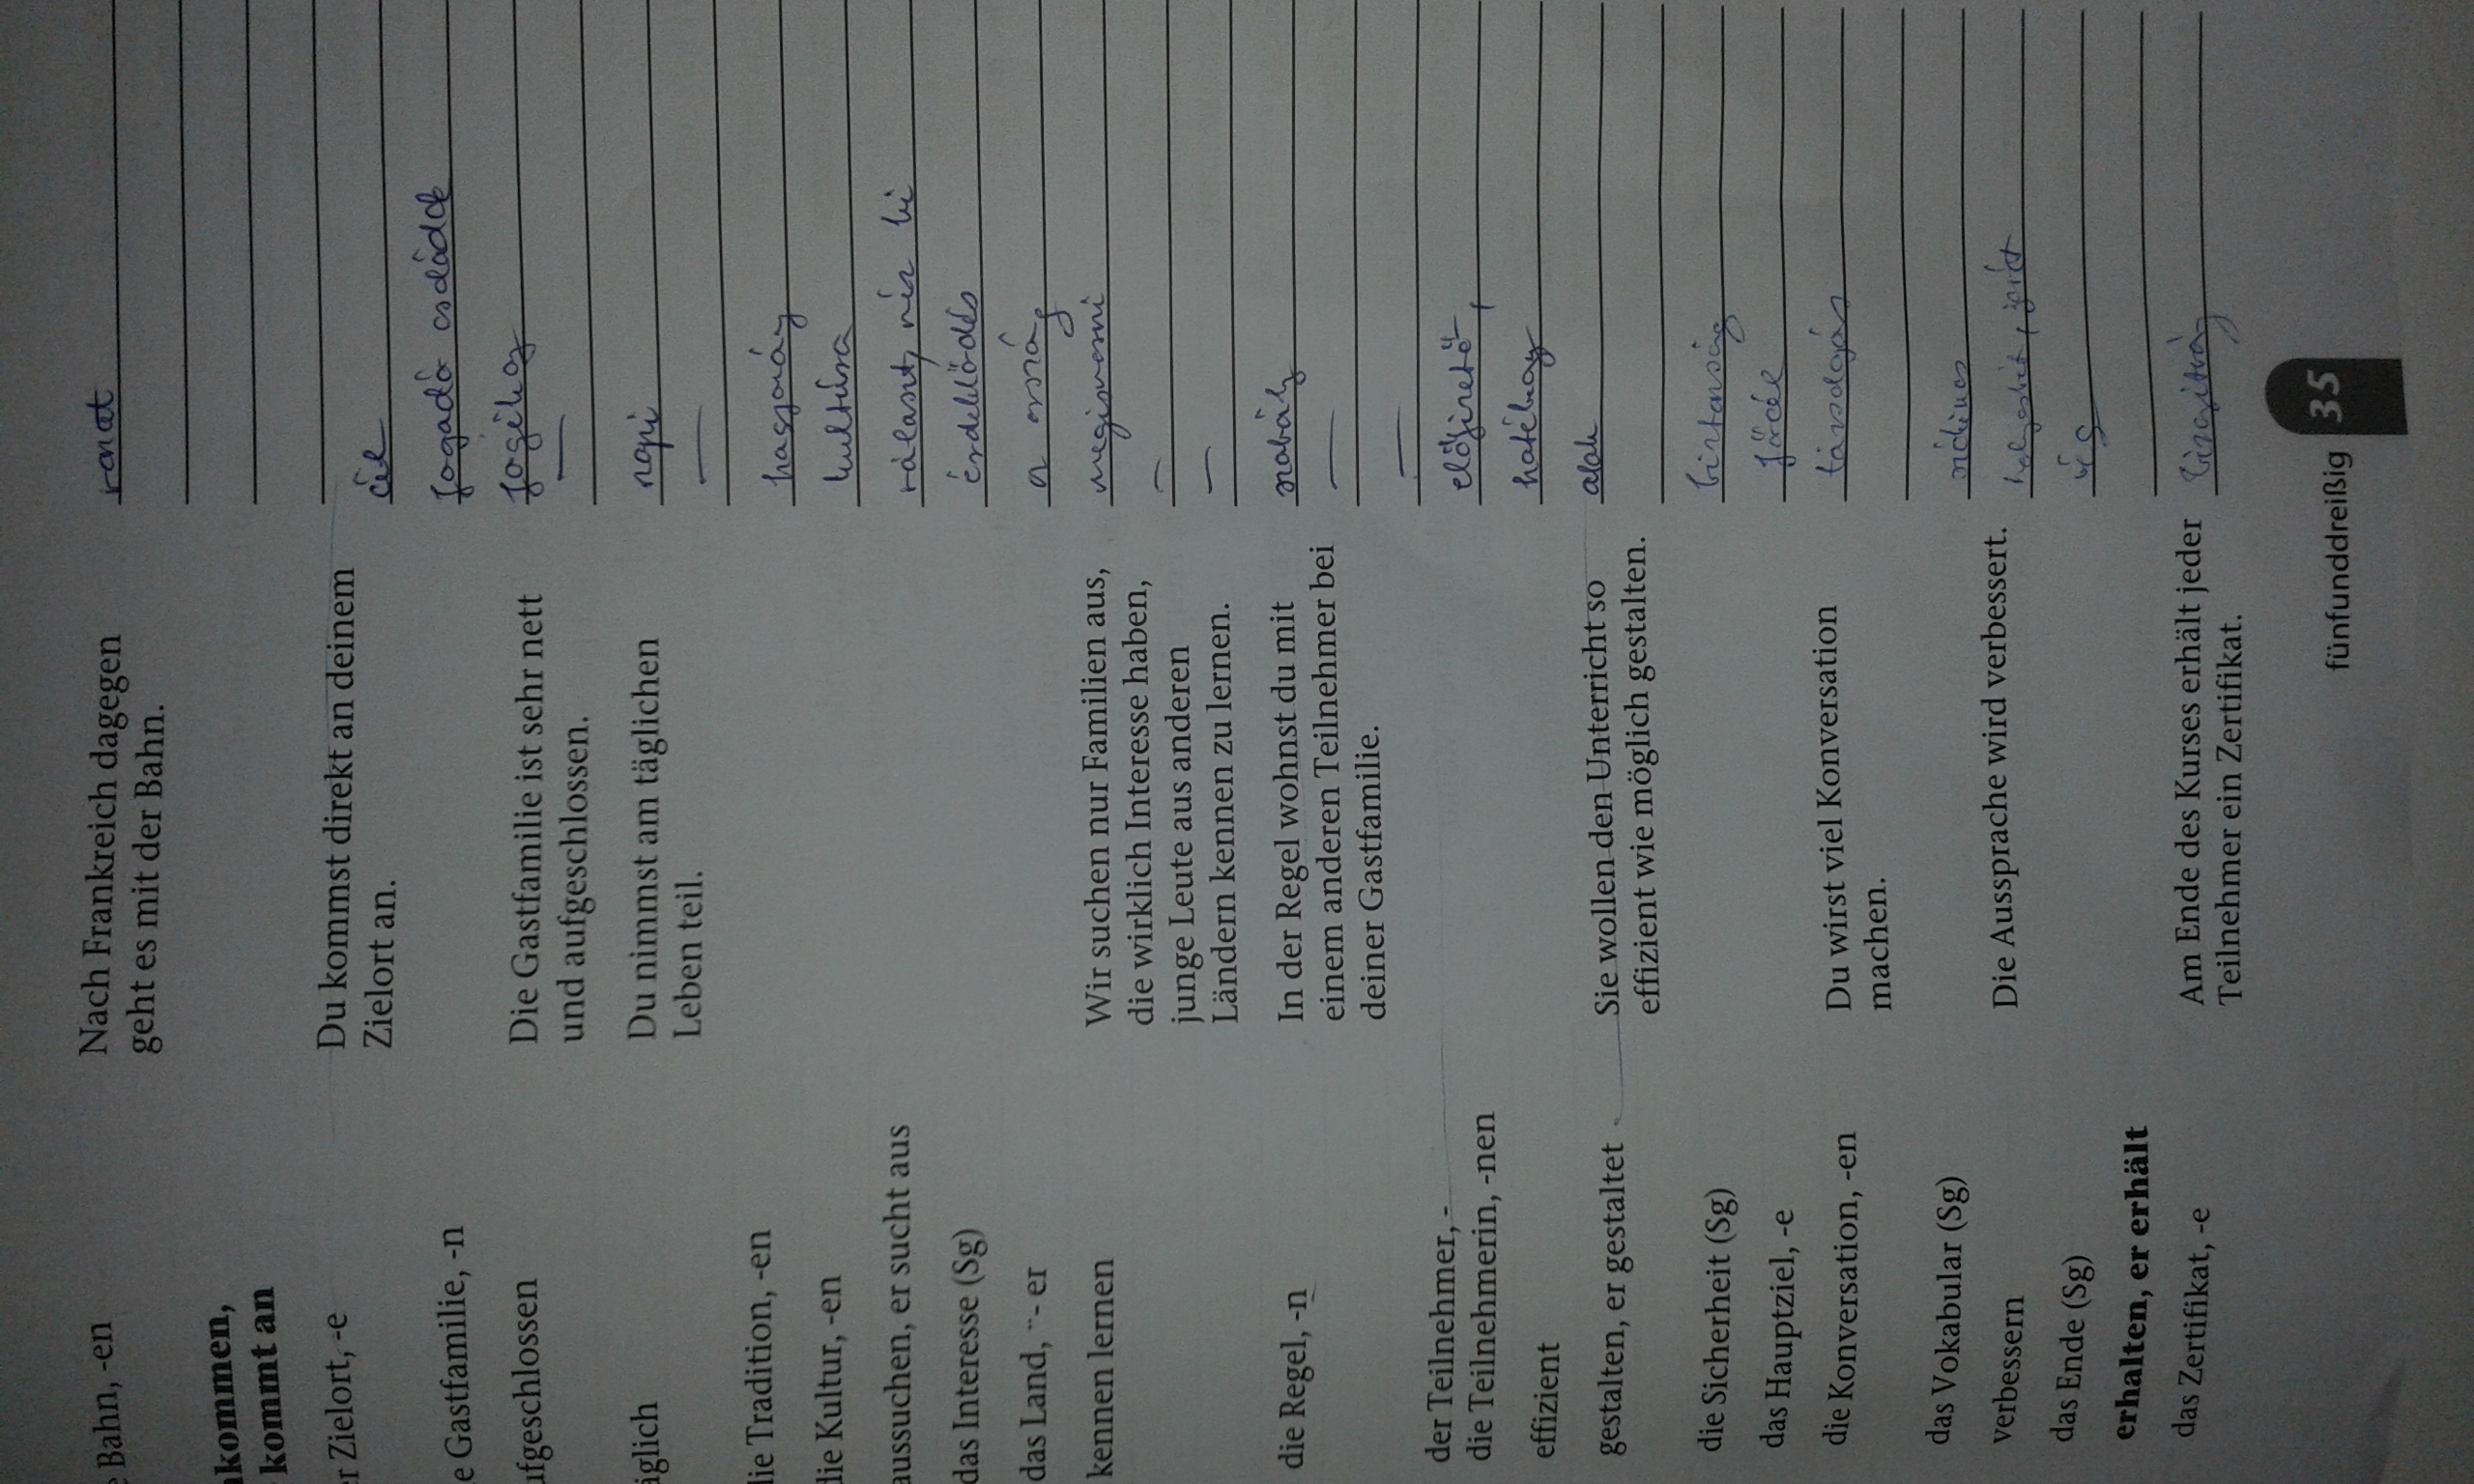 Bahn, -en Nach Frankreich dagegen vonat
geht es mit der Bahn.
kommen,
kommt an
Zielort, -e Du kommst direkt an deinem
Zielort an. cél
e Gastfamilie, -n fogadó család
ufgeschlossen Die Gastfamilie ist sehr nett
und aufgeschlossen.
äglich Du nimmst am täglichen napi
Leben teil.
lie Tradition, -en hagyomány
die Kultur, -en kultúra
aussuchen, er sucht aus választ, néz ki
das Interesse (Sg) érdeklődés
das Land, ¨- er ország
kennen lernen Wir suchen nur Familien aus, megismerni
die wirklich Interesse haben,
junge Leute aus anderen
Ländern kennen zu lernen.
die Regel, -n In der Regel wohnst du mit szabály
einem anderen Teilnehmer bei
deiner Gastfamilie.
der Teilnehmer, -
die Teilnehmerin, -nen
effizient hatékony
gestalten, er gestaltet Sie wollen den Unterricht so alak
effizient wie möglich gestalten.
die Sicherheit (Sg) biztonság
das Hauptziel, -e főcél
die Konversation, -en Du wirst viel Konversation társalgás
machen.
das Vokabular (Sg)
verbessern Die Aussprache wird verbessert.
das Ende (Sg) vég
erhalten, er erhält
das Zertifikat, -e Am Ende des Kurses erhält jeder bizonyítvány
Teilnehmer ein Zertifikat.
fünfunddreißig 35